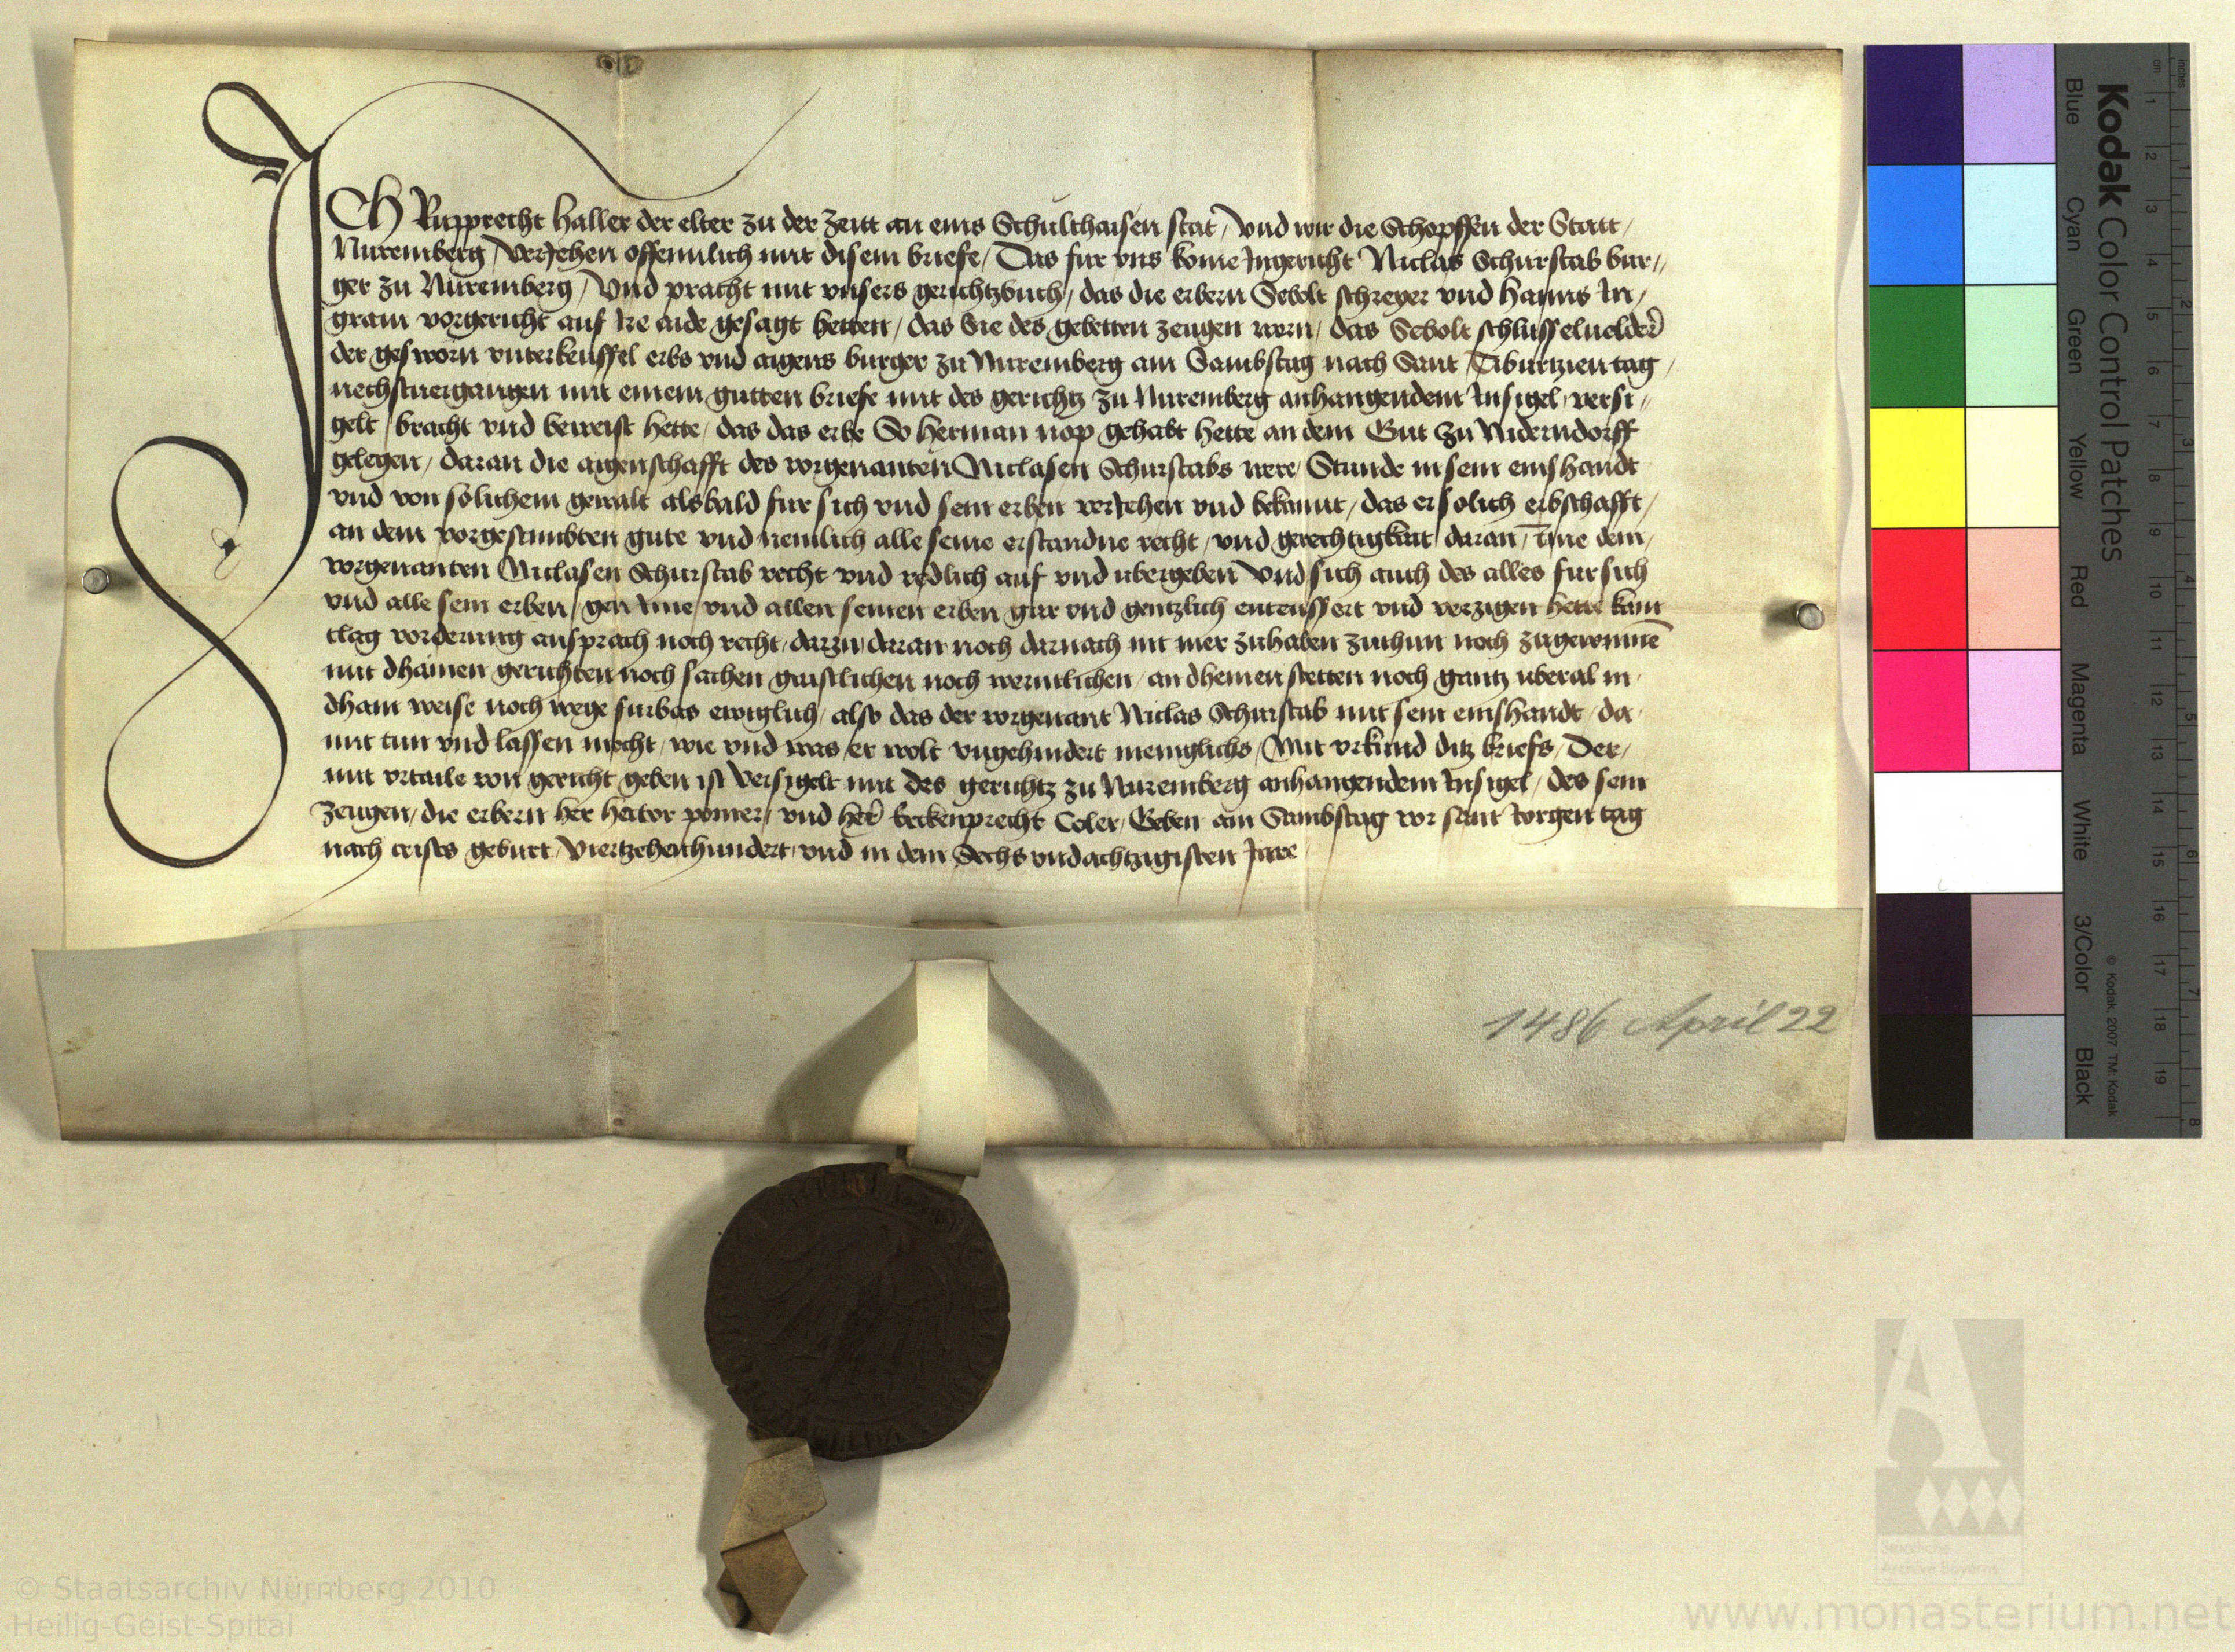 ICH Rupprecht Haller der elter zu der Zeitt an eins Schulthaisen stat / Vnd wir die Schopffen der Statt /
Nuremberg / Verjehen offennlich mit disem briefe / Das fur vns kome Ingericht Niclas Schurstab bur //
ger zu Nuremberg / Vnd pracht mit vnsers gerichtzbuch / das die erbern Sebolt schreyer vnd Hanns In /
gram vorgericht auf Ire aide gesagt hetten / das Sie des gebetten zeugen wern / das Sebolt schlusselueldr̃
der gesworn vnterkeuffel erbs vnd aigens burger zu Nuremberg am Sambstag nach Sant Tiburtzien tag /
nechstuergangen mit einem gutten briefe mit des gerichtz zu Nuremberg anhangendem Insigel / versi //
gelt / bracht vnd beweist hette / das das erbe So Herman nop gehabt hette an dem Gut zu Niderndorff
gelegen / daran die aigenschafft des vorgenanten Niclasen Schurstabs were / Stunde in sein einshandt
vnd von solichem gewalt alsbald fur sich vnd sein erben verjehen vnd bekannt / das er solich erbschafft /
an dem vorgestimbten gute vnd nemlich alle seine erstandne recht / vnd gerechtigkait daran / Ime dem /
vorgenanten Niclasen Schurstab recht vnd redlich auf vnd vbergeben Vnd sich auch des alles fur sich
vnd alle sein erben / gen Ime / vnd allen seinen erben gar vnd gentzlich entewssert vnd verzigen hette kain
clag vorderung ansprach noch recht / darzu daran noch darnach nit mer zuhaben zuthun noch zugewinnẽ
mit dhainen gerichten noch sachen gaistlichen noch werntlichen / an dheinen stetten noch gantz vberal in /
dhain weise noch wege furbas ewiglich / also das der vorgenant Niclas Schurstab mit sein einshandt / da /
mit tun vnd lassen mocht / wie vnd was er wolt vngehindert meniglichs / Mit vrkund ditz briefs / Der /
mit vrtaile von gericht geben ist Versigelt mit des gerichtz zu Nuremberg anhangendem Insigel / des sein
zeugen / die erbern her hector pomer / vnd her̃ beckenprecht Coler / Geben am Sambstag vor sant Jorgen tag
nach crists geburt / Viertzehenhundert / vnd in dem Sechs vndachtzigisten Jare
1486 April 22
Kodak Color Control Patches
Blue Cyan Green Yellow Red Magenta White 3/Color Black
© Kodak, 2007 TM: Kodak
inches 1 2 3 4 5 6 7 8
cm 1 2 3 4 5 6 7 8 9 10 11 12 13 14 15 16 17 18 19
© Staatsarchiv Nürnberg 2010
Heilig-Geist-Spital
Staatliche
Archive Bayerns
www.monasterium.net